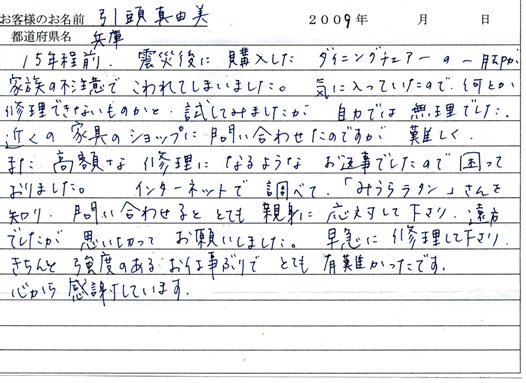 お客様のお名前 引頭 真由美 2009年 月 日
都道府県名 兵庫
15年程前、震災後に購入したダイニングチェアーの一脚が
家族の不注意でこわれてしまいました。気に入っていたので、何とか
修理できないものかと、試してみましたが自力では無理でした。
近くの家具のショップに問い合わせたのですが難しく、
また高額な修理になるようなお返事でしたので困って
おりました。インターネットで調べて、「みうらラタン」さんを
知り、問い合わせるととても親身に応対して下さり、遠方
でしたが思い切ってお願いしました。早急に修理して下さり、
きちんと強度のあるお仕事ぶりでとても有難かったです。
心から感謝しています。